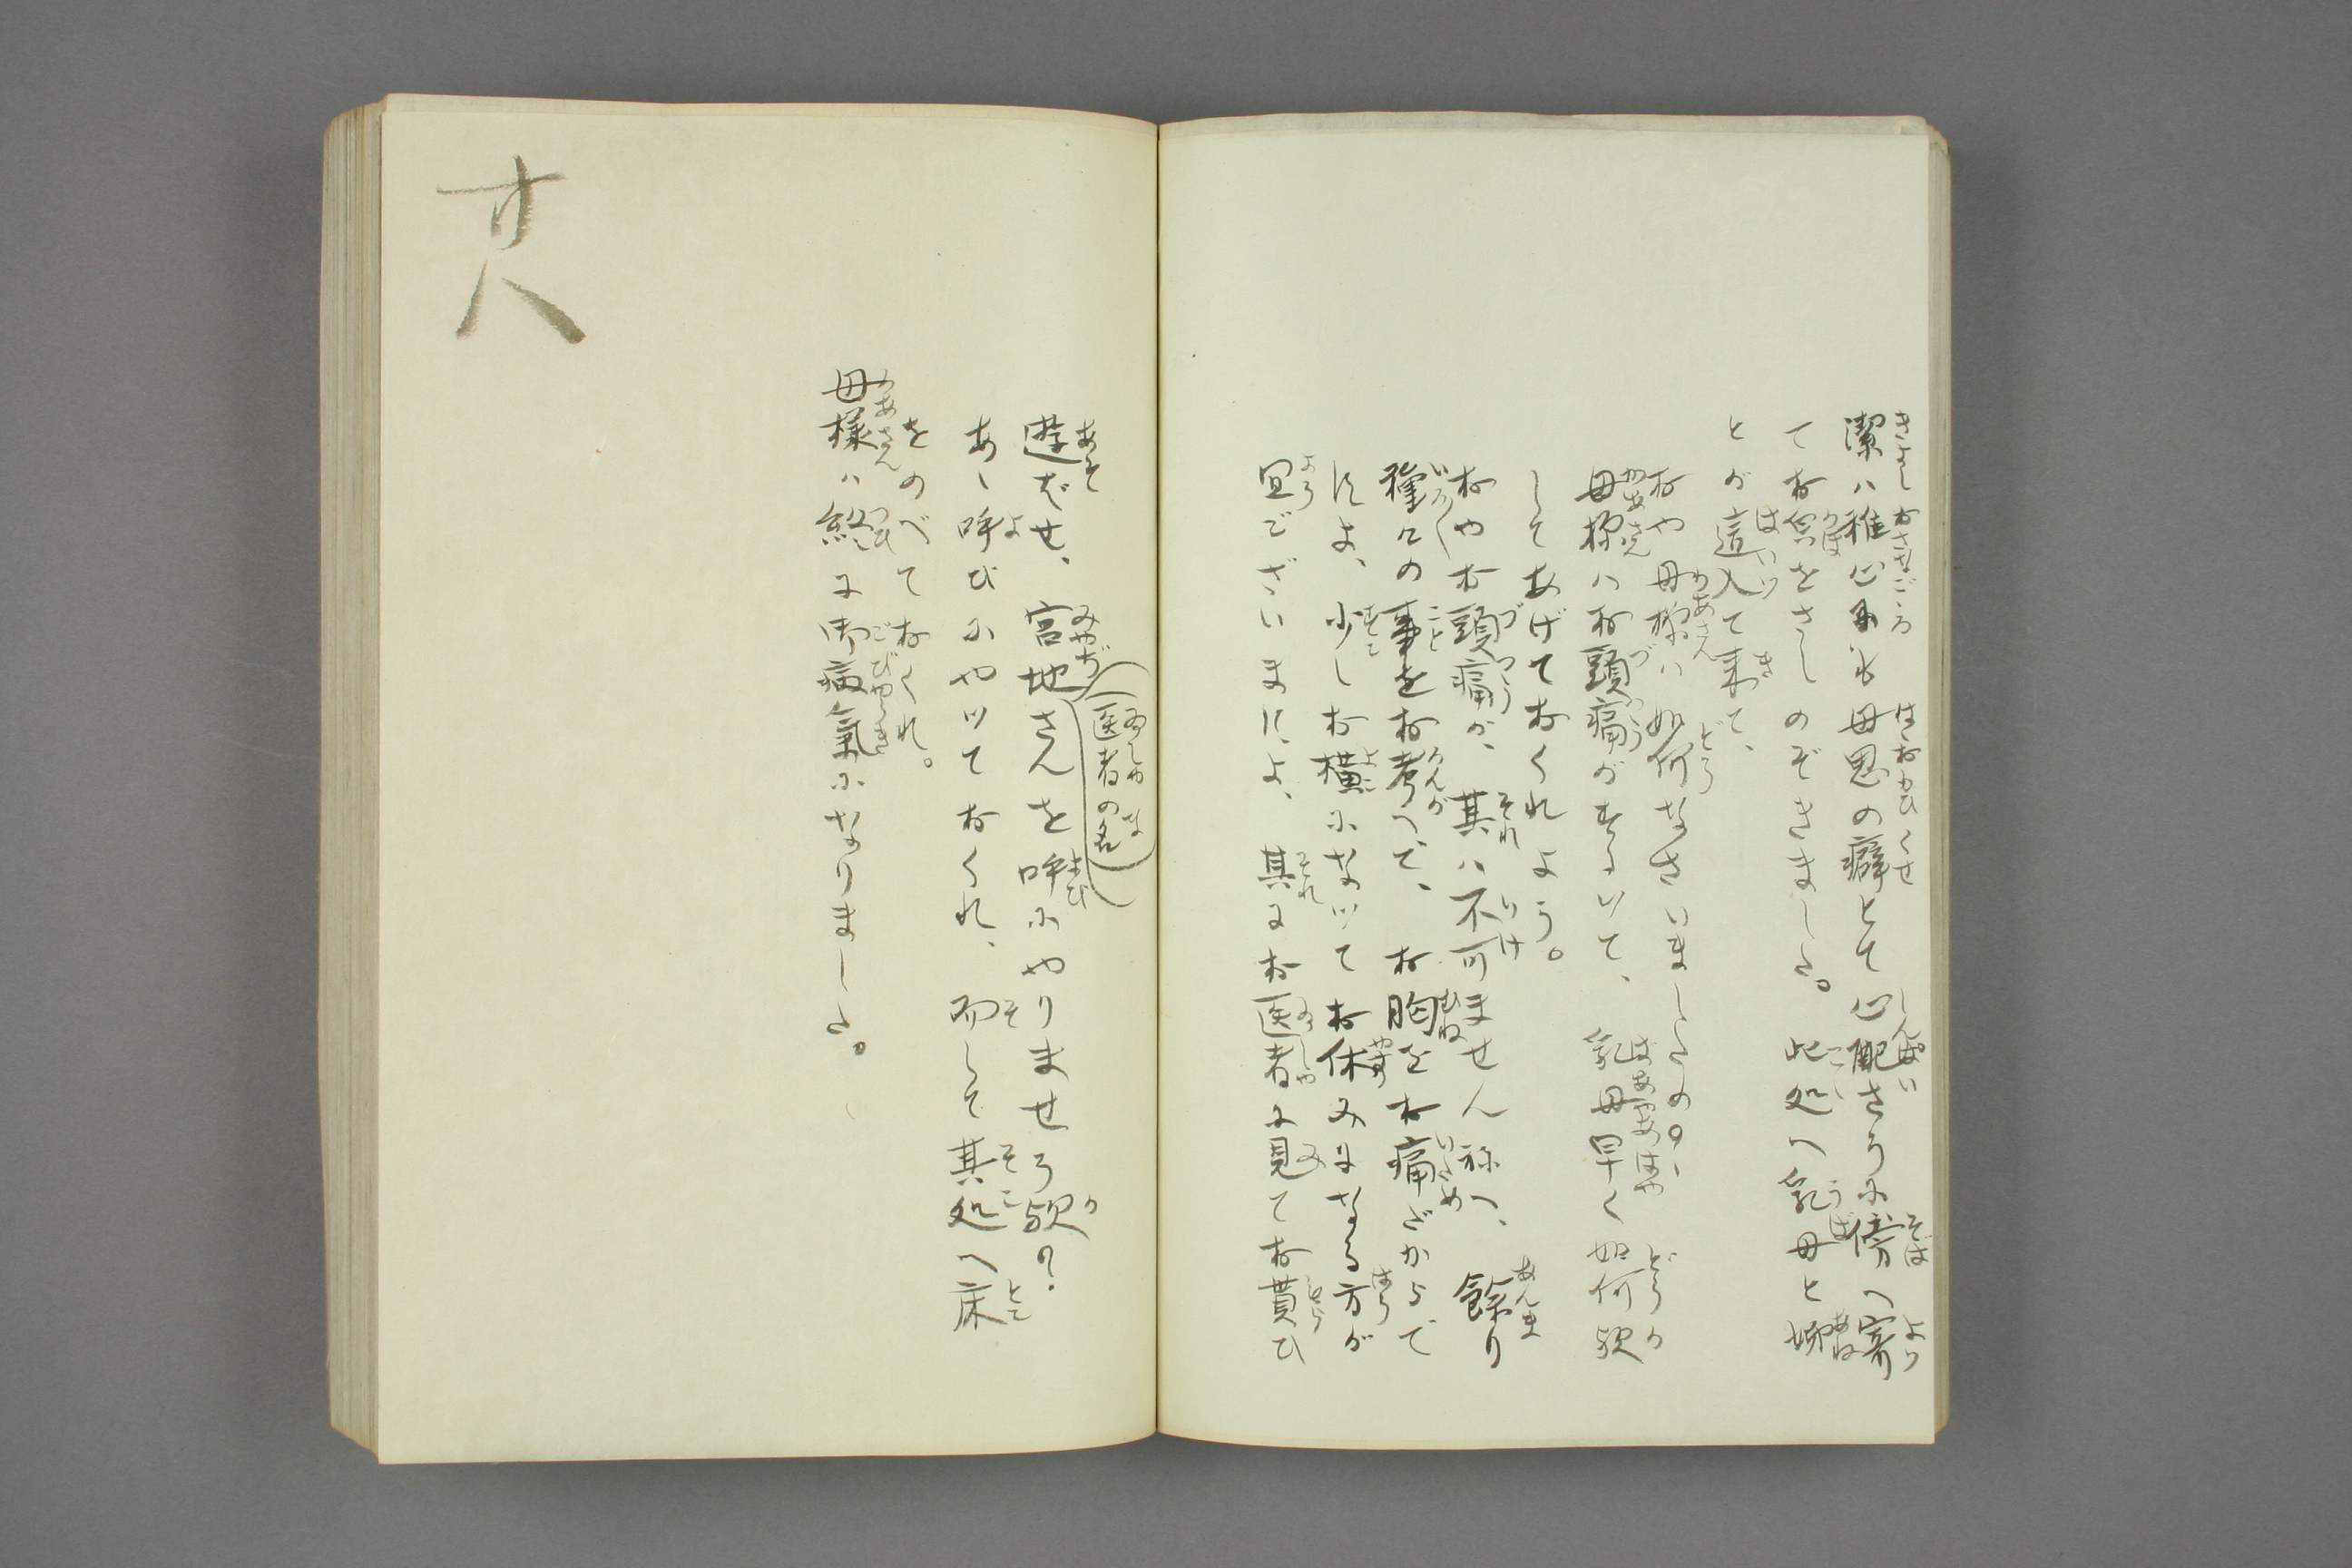 潔ハ稚心にも母思の癖とて心配さうに傍へ寄
てお皃をさしのぞきました。此処へ乳母と姉
とが這入て来て、
おや母様ハ如何なさいましたの。
母様ハお頭痛がするいて、乳母早く如何欤
してあげておくれよう。
おやお頭痛が、其ハ不可ません祢へ、餘り
種々の事をお考へで、お胸をお痛だからで
すよ、少しお横になツてお休みになる方が
宜ございますよ、其にお医者に見てお貰ひ
遊ばせ、宮地さん(医者の名)を呼にやりませう欤?
あゝ呼びにやツておくれ、而して其処へ床
をのべておくれ。
母様ハ終に御病氣になりました。
廿八